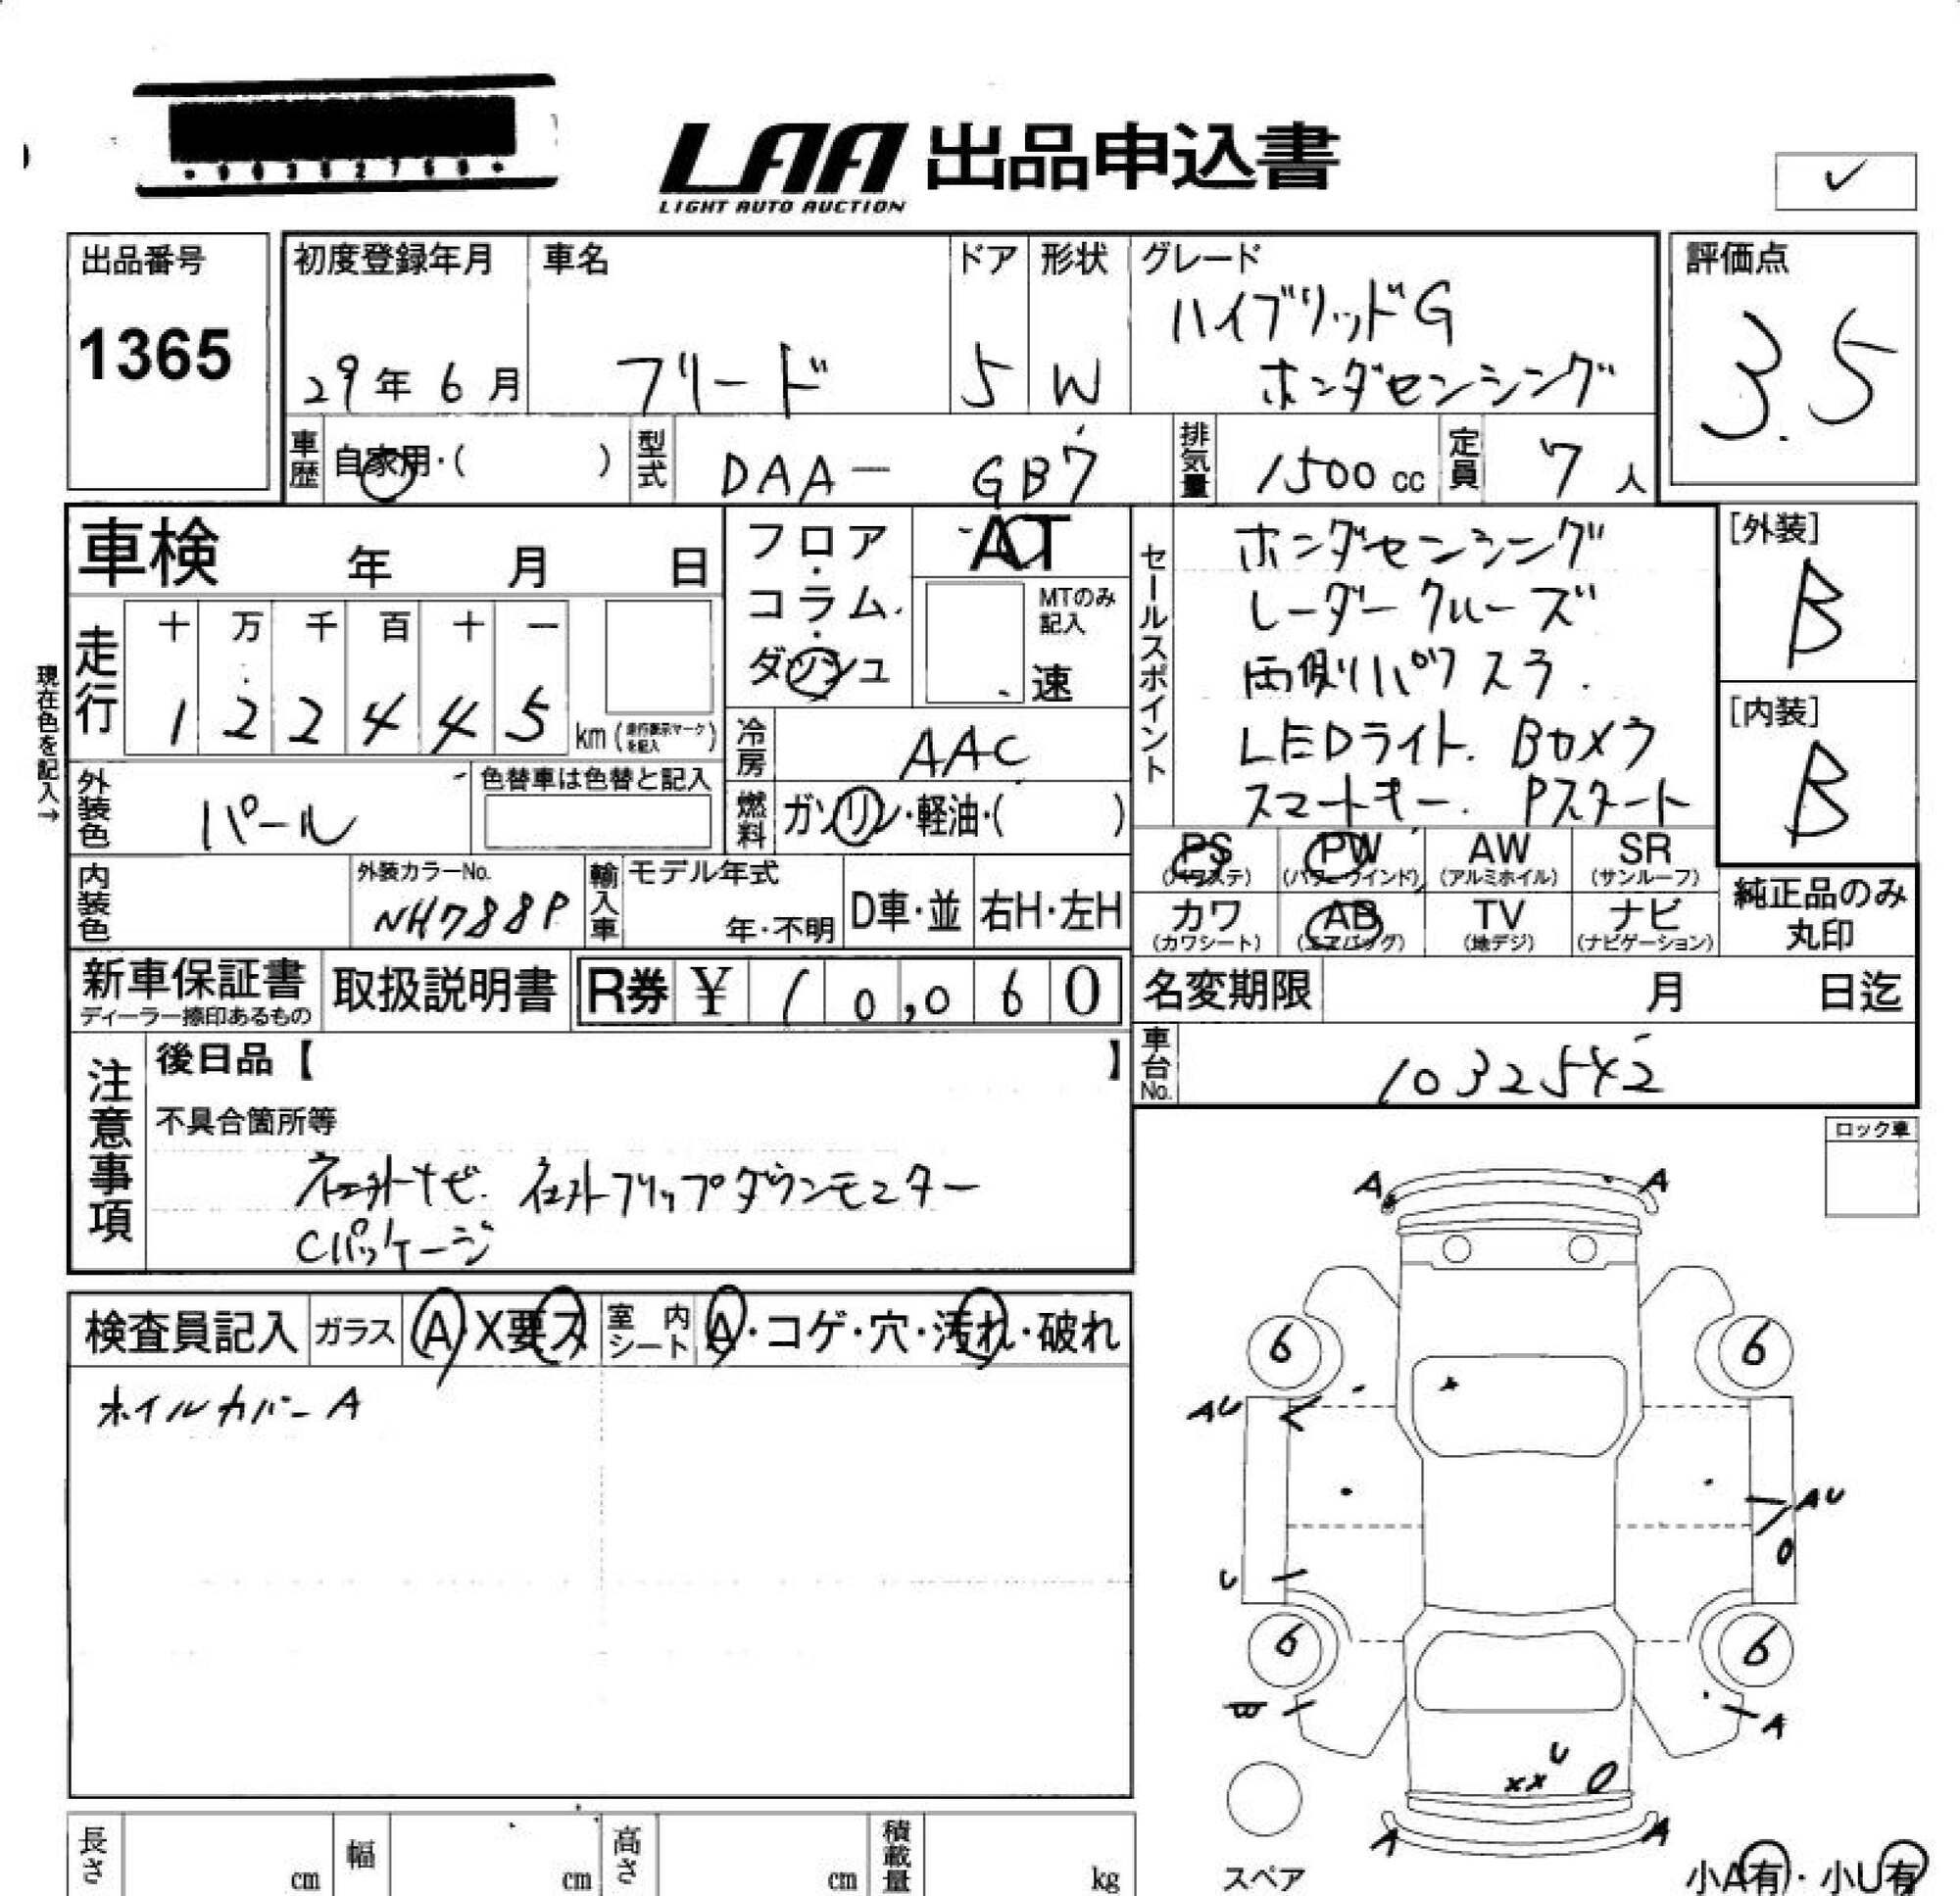 LAA 出品申込書
LIGHT AUTO AUCTION
出品番号
1365
初度登録年月
29年 6月
車名
フリード
ドア
5
形状
W
グレード
ハイブリッドG
ホンダセンシング
評価点
3.5
車歴
自家用・( )
型式
DAA- GB7
排気量
1500 cc
定員
7人
車検 年 月 日
フロア・コラム・ダッシュ
AT
MTのみ記入
速
セールスポイント
ホンダセンシング
レーダークルーズ
両側パワスラ
LEDライト. Bカメラ
スマートキー. Pスタート
[外装]
B
[内装]
B
現在色を記入→
走行
十 万 千 百 十 一
1 2 2 4 4 5 km (走行表示マークを記入)
冷房
AAC
外装色
パール
色替車は色替と記入
燃料
ガソリン・軽油・( )
内装色
外装カラーNo.
NH788P
輸入車
モデル年式
年・不明
D車・並
右H・左H
PS (パワステ)
PW (パワーウインド)
AW (アルミホイル)
SR (サンルーフ)
カワ (カワシート)
AB (エアバッグ)
TV (地デジ)
ナビ (ナビゲーション)
純正品のみ丸印
新車保証書
ディーラー捺印あるもの
取扱説明書
R券 ¥ 10,060
名変期限 月 日迄
車台No.
1032542
注意事項
後日品【 】
不具合箇所等
社外ナビ. 社外フリップダウンモニター
Cパッケージ
ロック車
検査員記入
ガラス A・X要ス
室内シート A・コゲ・穴・汚れ・破れ
ホイルカバーA
A A
6 6
AU
AU
U
6 6
A
U
XX
A A
スペア
小A有・小U有
長さ cm
幅 cm
高さ cm
積載量 kg